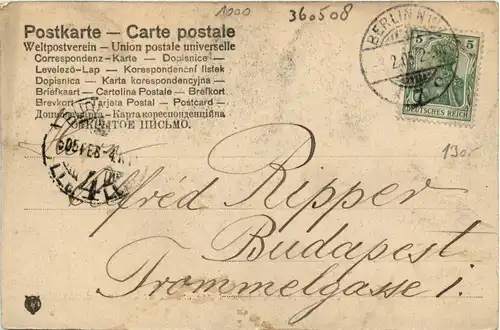 1000
360508
Postkarte — Carte postale
Weltpostverein — Union postale universelle
Correspondenz-Karte — Dopisnice —
Levelező-Lap — Korespondenční lístek
Dopisnica — Karta korespondencyjna —
Briefkaart — Cartolina Postale — Brefkort
Brevkort — Tarjeta Postal — Postcard —
Дописна карта — Карта кореспонденційна
ОТКРЫТОЕ ПИСЬМО.
BERLIN N
5 5
DEUTSCHES REICH
190.
905 FEB
4
Alfréd Ripper
Budapest
Trommelgasse 1.